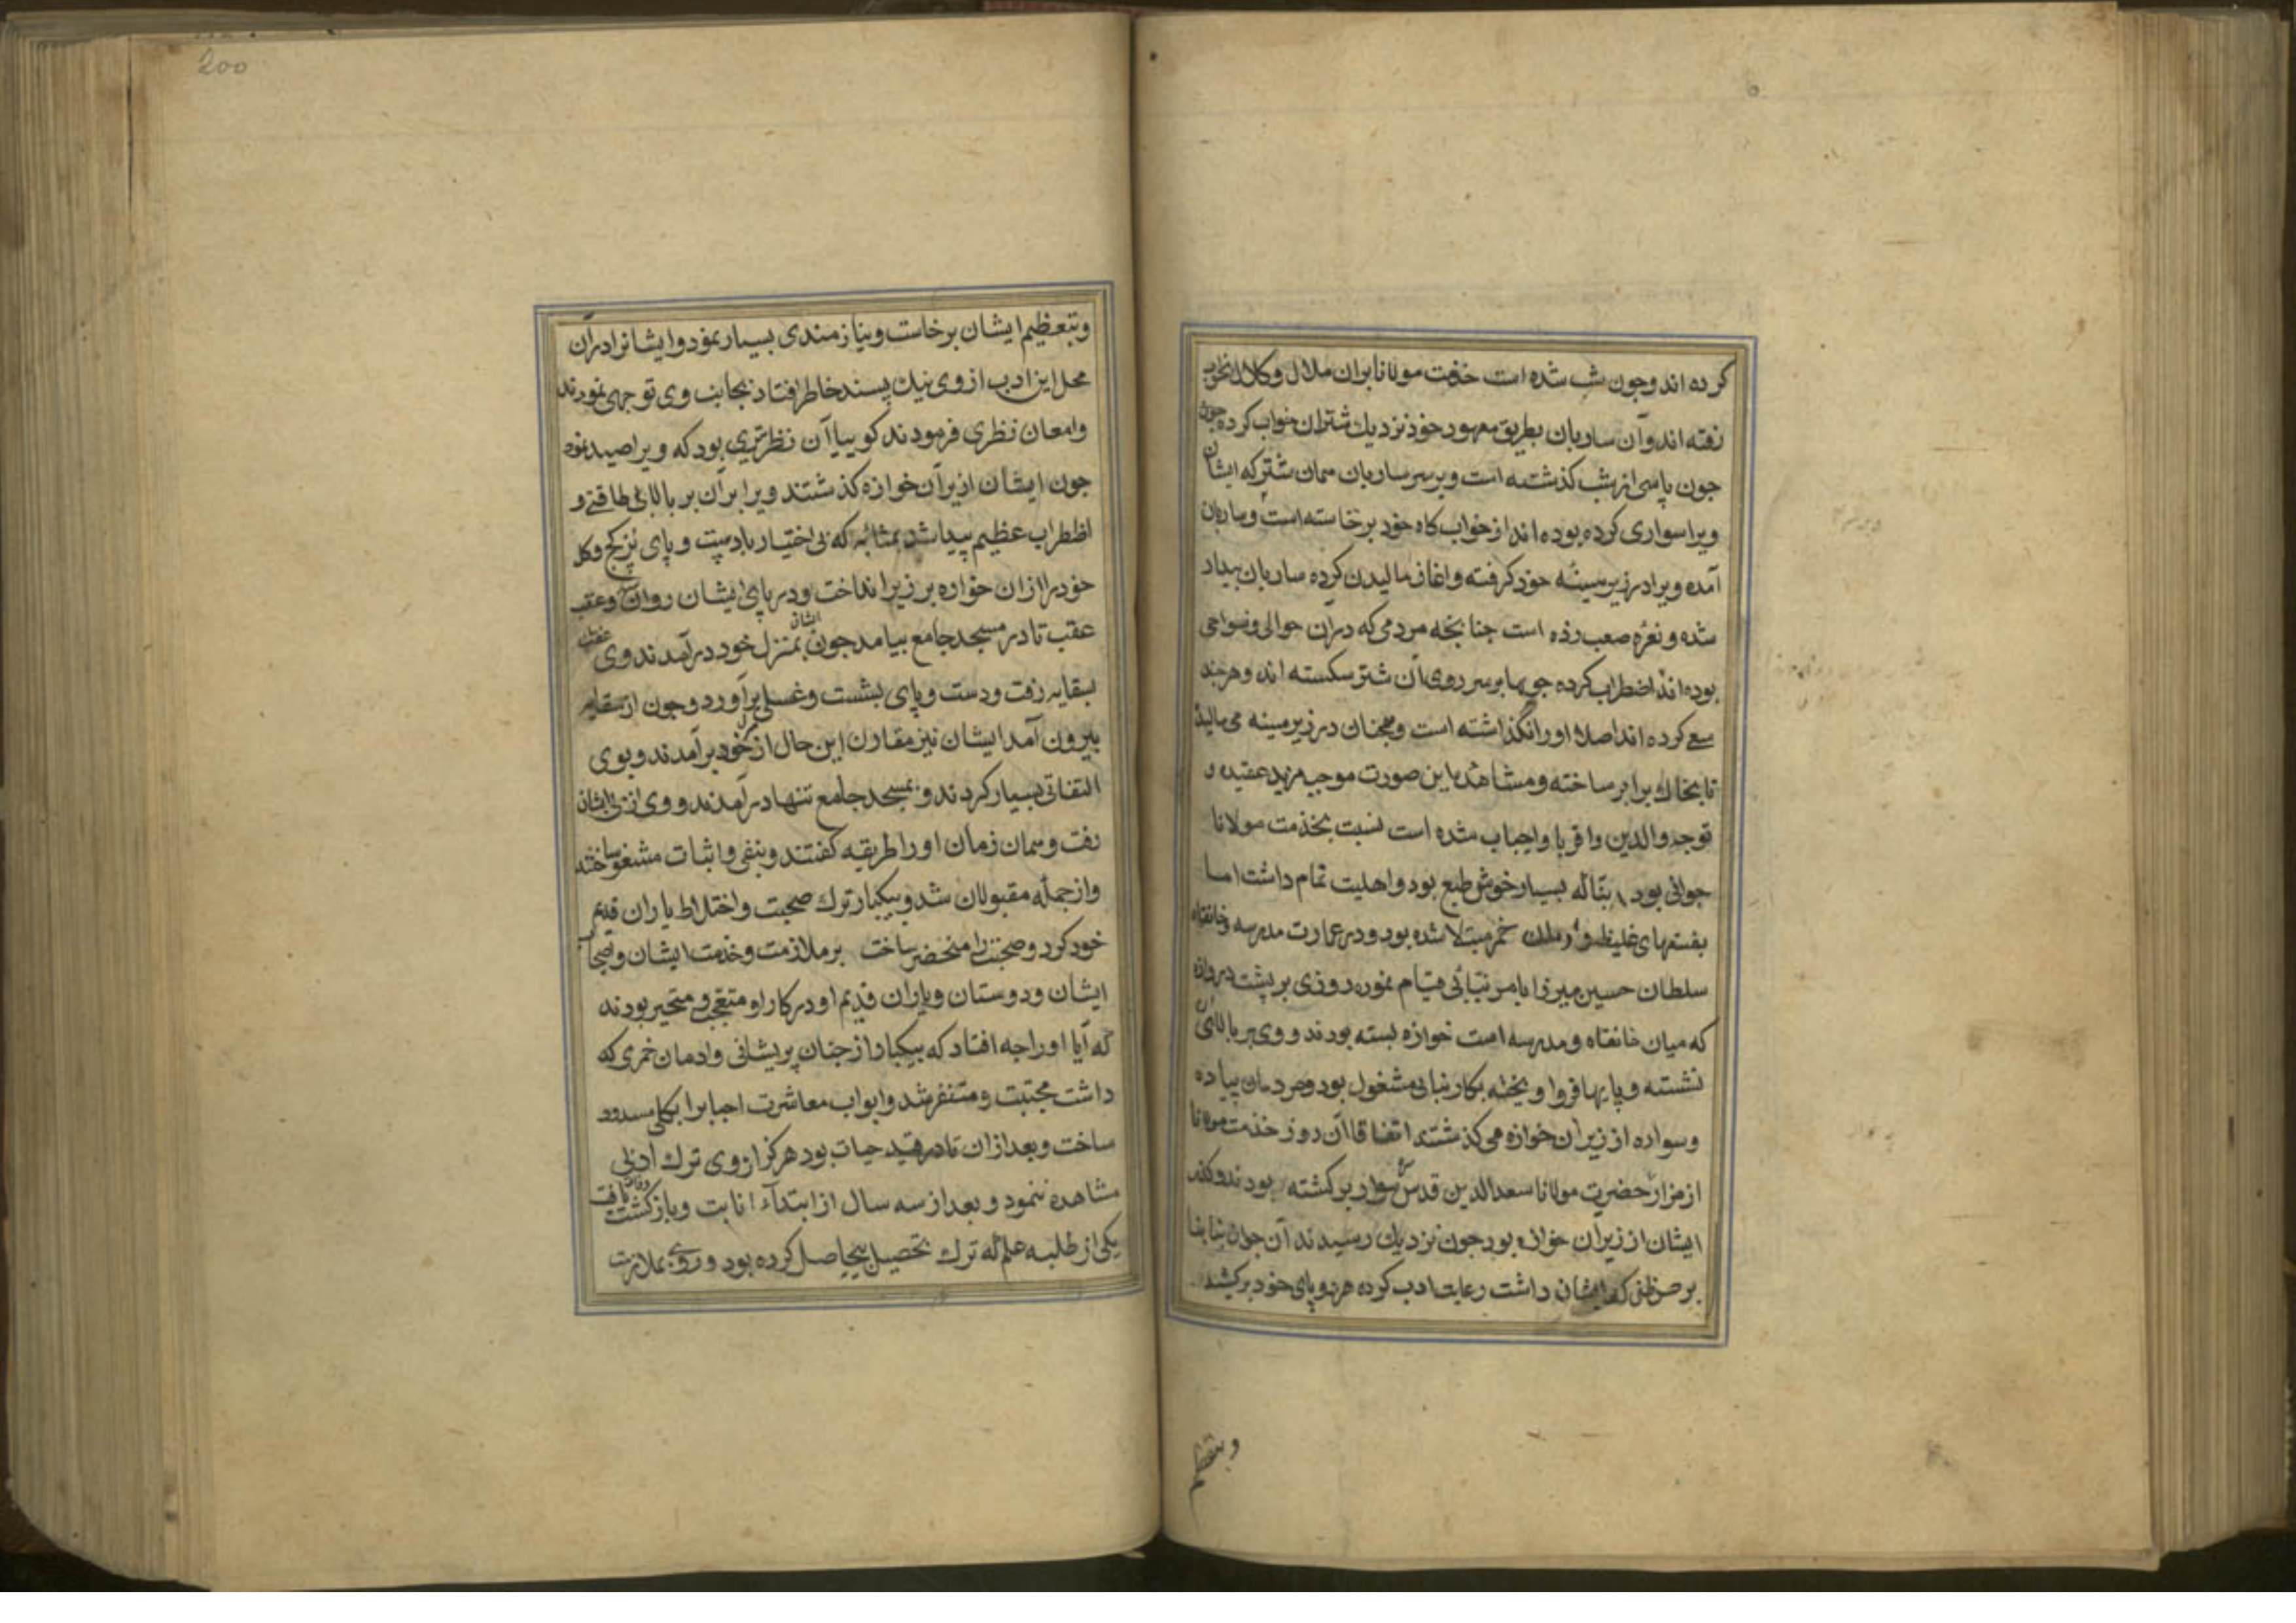 كرده اند وجون شب شده است خذمت مولانا بران ملال وكلال بخواب
رفته اند وآن ساربان بطريق معهود خوذ نزديك شتران خواب كرده جون
جون پاسى از شب كذشته است وبر سر ساربان همان شتر كه ايشان
ويرا سوارى كرده بوده اند از خواب كاه خود برخاسته است وساربان
آمده ويرا در زير سينهٔ خوذ كرفته واغاز ماليدن كرده ساربان بيدار
شده ونعرهٔ صعب زذه است جنانجه مردمى كه دران حوالى ونواحى
بوده اند اضطراب كرده جوبها بر سر روى آن شتر سكسته اند وهرجند
سع كرده اند اصلا اورا نكذاشته است وهمجنان در زير سينه مى ماليذ
تا بخاك برابر ساخته ومشاهده اين صورت موجب مزيد عقيده و
توجه والدين واقربا واحباب شده است نسبت بخذمت مولانا
جوانى بود بنّا كه بسيار خوش طبع بود واهليت تمام داشت اما
بفسقهاى غليظ و ادمان خمر مبتلا شده بود ودر عمارت مدرسه وخانقاه
سلطان حسين ميرزا بامر بنائى قيام نموده روزى بر پشت دروازه
كه ميان خانقاه ومدرسه است خوازه بسته بودند و وى بر بالاى آن
نشسته و پايها فروا ويخته بكار بنائى مشغول بود ومردمان پياده
وسواره از زير آن خوازه مى كذشتند اتفاقا آن روز خذمت مولانا
از مزار حضرت مولانا سعد الدين قدس سره سوار بر كشته بودند وكذر
ايشان از زير آن خوازه بود جون نزديك رسيدند آن جوان بنا بنا
بر حسن ظنى كه بايشان داشت رعايت ادب كرده هر دو پاى خود بر كشيد
وبتعظيم
200
وبتعظيم ايشان برخاست ونيازمندى بسيار نمود وايشانرا دران
محل اين ادب از وى نيك پسند خاطر افتاد بجانب وى توجهى نمودند
وامعان نظرى فرمودند كوييا آن نظر تيرى بود كه ويرا صيد نمود
جون ايشان از زير آن خوازه كذشتند ويرا بران بر بالاى طاقتى و
اظطراب عظيم پيدا شد بمثابهٔ كه بى اختيار با دست و پاى پر كج وكل
خود را ازان خوازه بر زير انداخت ودر پاى ايشان روان شد وعقب
عقب تا در مسجد جامع بيامد جون ايشان بمنزل خود در آمدند وى
بسقايه رفت ودست و پاى بشست وغسلى بر آورد وجون از سقايه
بيرون آمد ايشان نيز مقارن اين حال از منزل خود بر آمدند وبوى
التفاتى بسيار كردند وبمسجد جامع تنها در آمدند و وى از پى ايشان
رفت وهمان زمان اورا طريقه كفتند وبنفى واثبات مشغول ساختند
واز جملهٔ مقبولان شد وبيكبار ترك صحبت واختلاط ياران قديم
خود كرد وصحبت را منحضر ساخت بر ملازمت وخذمت ايشان واصحاب
ايشان ودوستان وياران قديم او در كار او متعجب ومتحير بودند
كه آيا اورا جه افتاد كه بيكبار از جنان پريشانى وادمان خمرى كه
داشت مجتنب ومتنفر شد وابواب معاشرت احبا برا بكلى مسدود
ساخت وبعد ازان تا در قيد حيات بود هركز از وى ترك ادبى
مشاهده ننمود و بعد از سه سال از ابتداء انابت وبازكشت وفات يافت
يكى از طلبه علم كه ترك تحصيل بيحاصل كرده بود وروى بملازمت